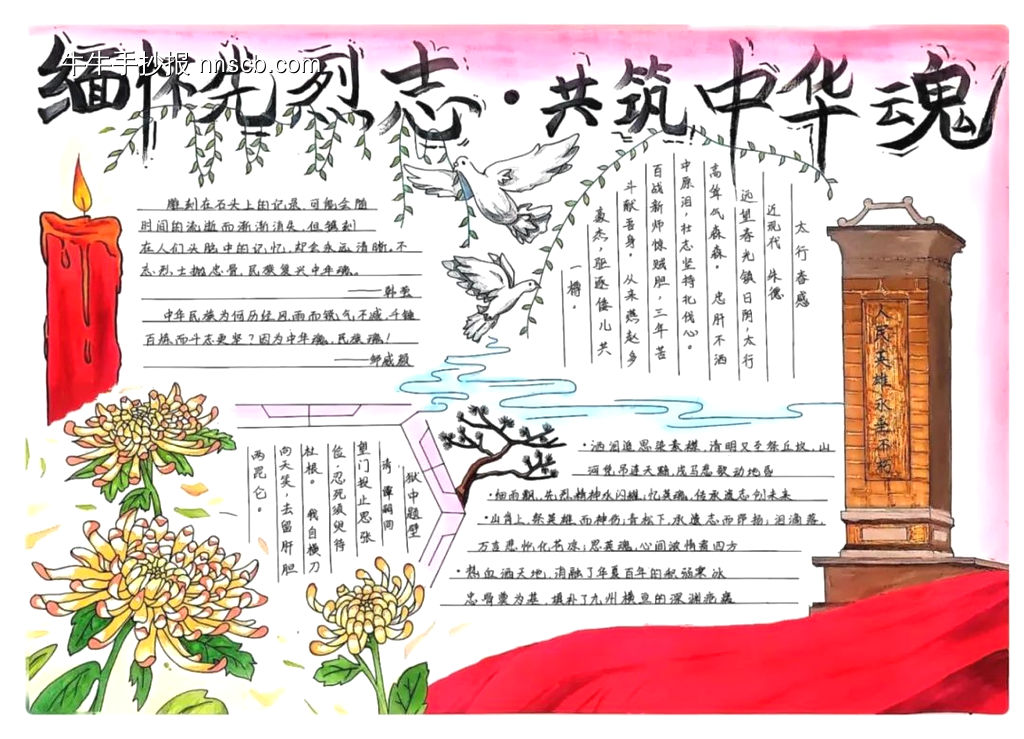 缅怀先烈志·共筑中华魂
牛牛手抄报 nnscb.com
雕刻在石头上的记录,可能会随
时间的流逝而渐渐消失,但镌刻
在人们头脑中的记忆,却会永远清晰。不
忘烈士抛忠骨,民族复兴中华魂。
——韩芸
中华民族为何历经风雨而锐气不减,千锤
百炼而斗志更坚?因为中华魂,民族魂!
——邹威毅
太行春感
近现代 朱德
远望春光镇日阴,太行
高耸气森森。 忠肝不洒
中原泪,壮志坚持北伐心。
百战新师惊贼胆,三年苦
斗献吾身。 从来燕赵多
豪杰,驱逐倭儿共
一樽。
人民英雄永垂不朽
狱中题壁
清 谭嗣同
望门投止思张
俭,忍死须臾待
杜根。 我自横刀
向天笑,去留肝胆
两昆仑。
·洒泪追思染素襟,清明又至祭丘坟,山
河凭吊连天黯,戍马悲歌动地昏
·细雨飘,先烈精神永闪耀;忆英魂,传承遗志创未来
·山岗上,祭英雄,而神伤;青松下,承遗志而昂扬;泪滴落,
万言悲怀化书凉;思英魂,心间浓情寄四方
·热血洒天地,消融了华夏百年的积弱寒冰
忠骨奠为基,填补了九州横亘的深渊疮痍